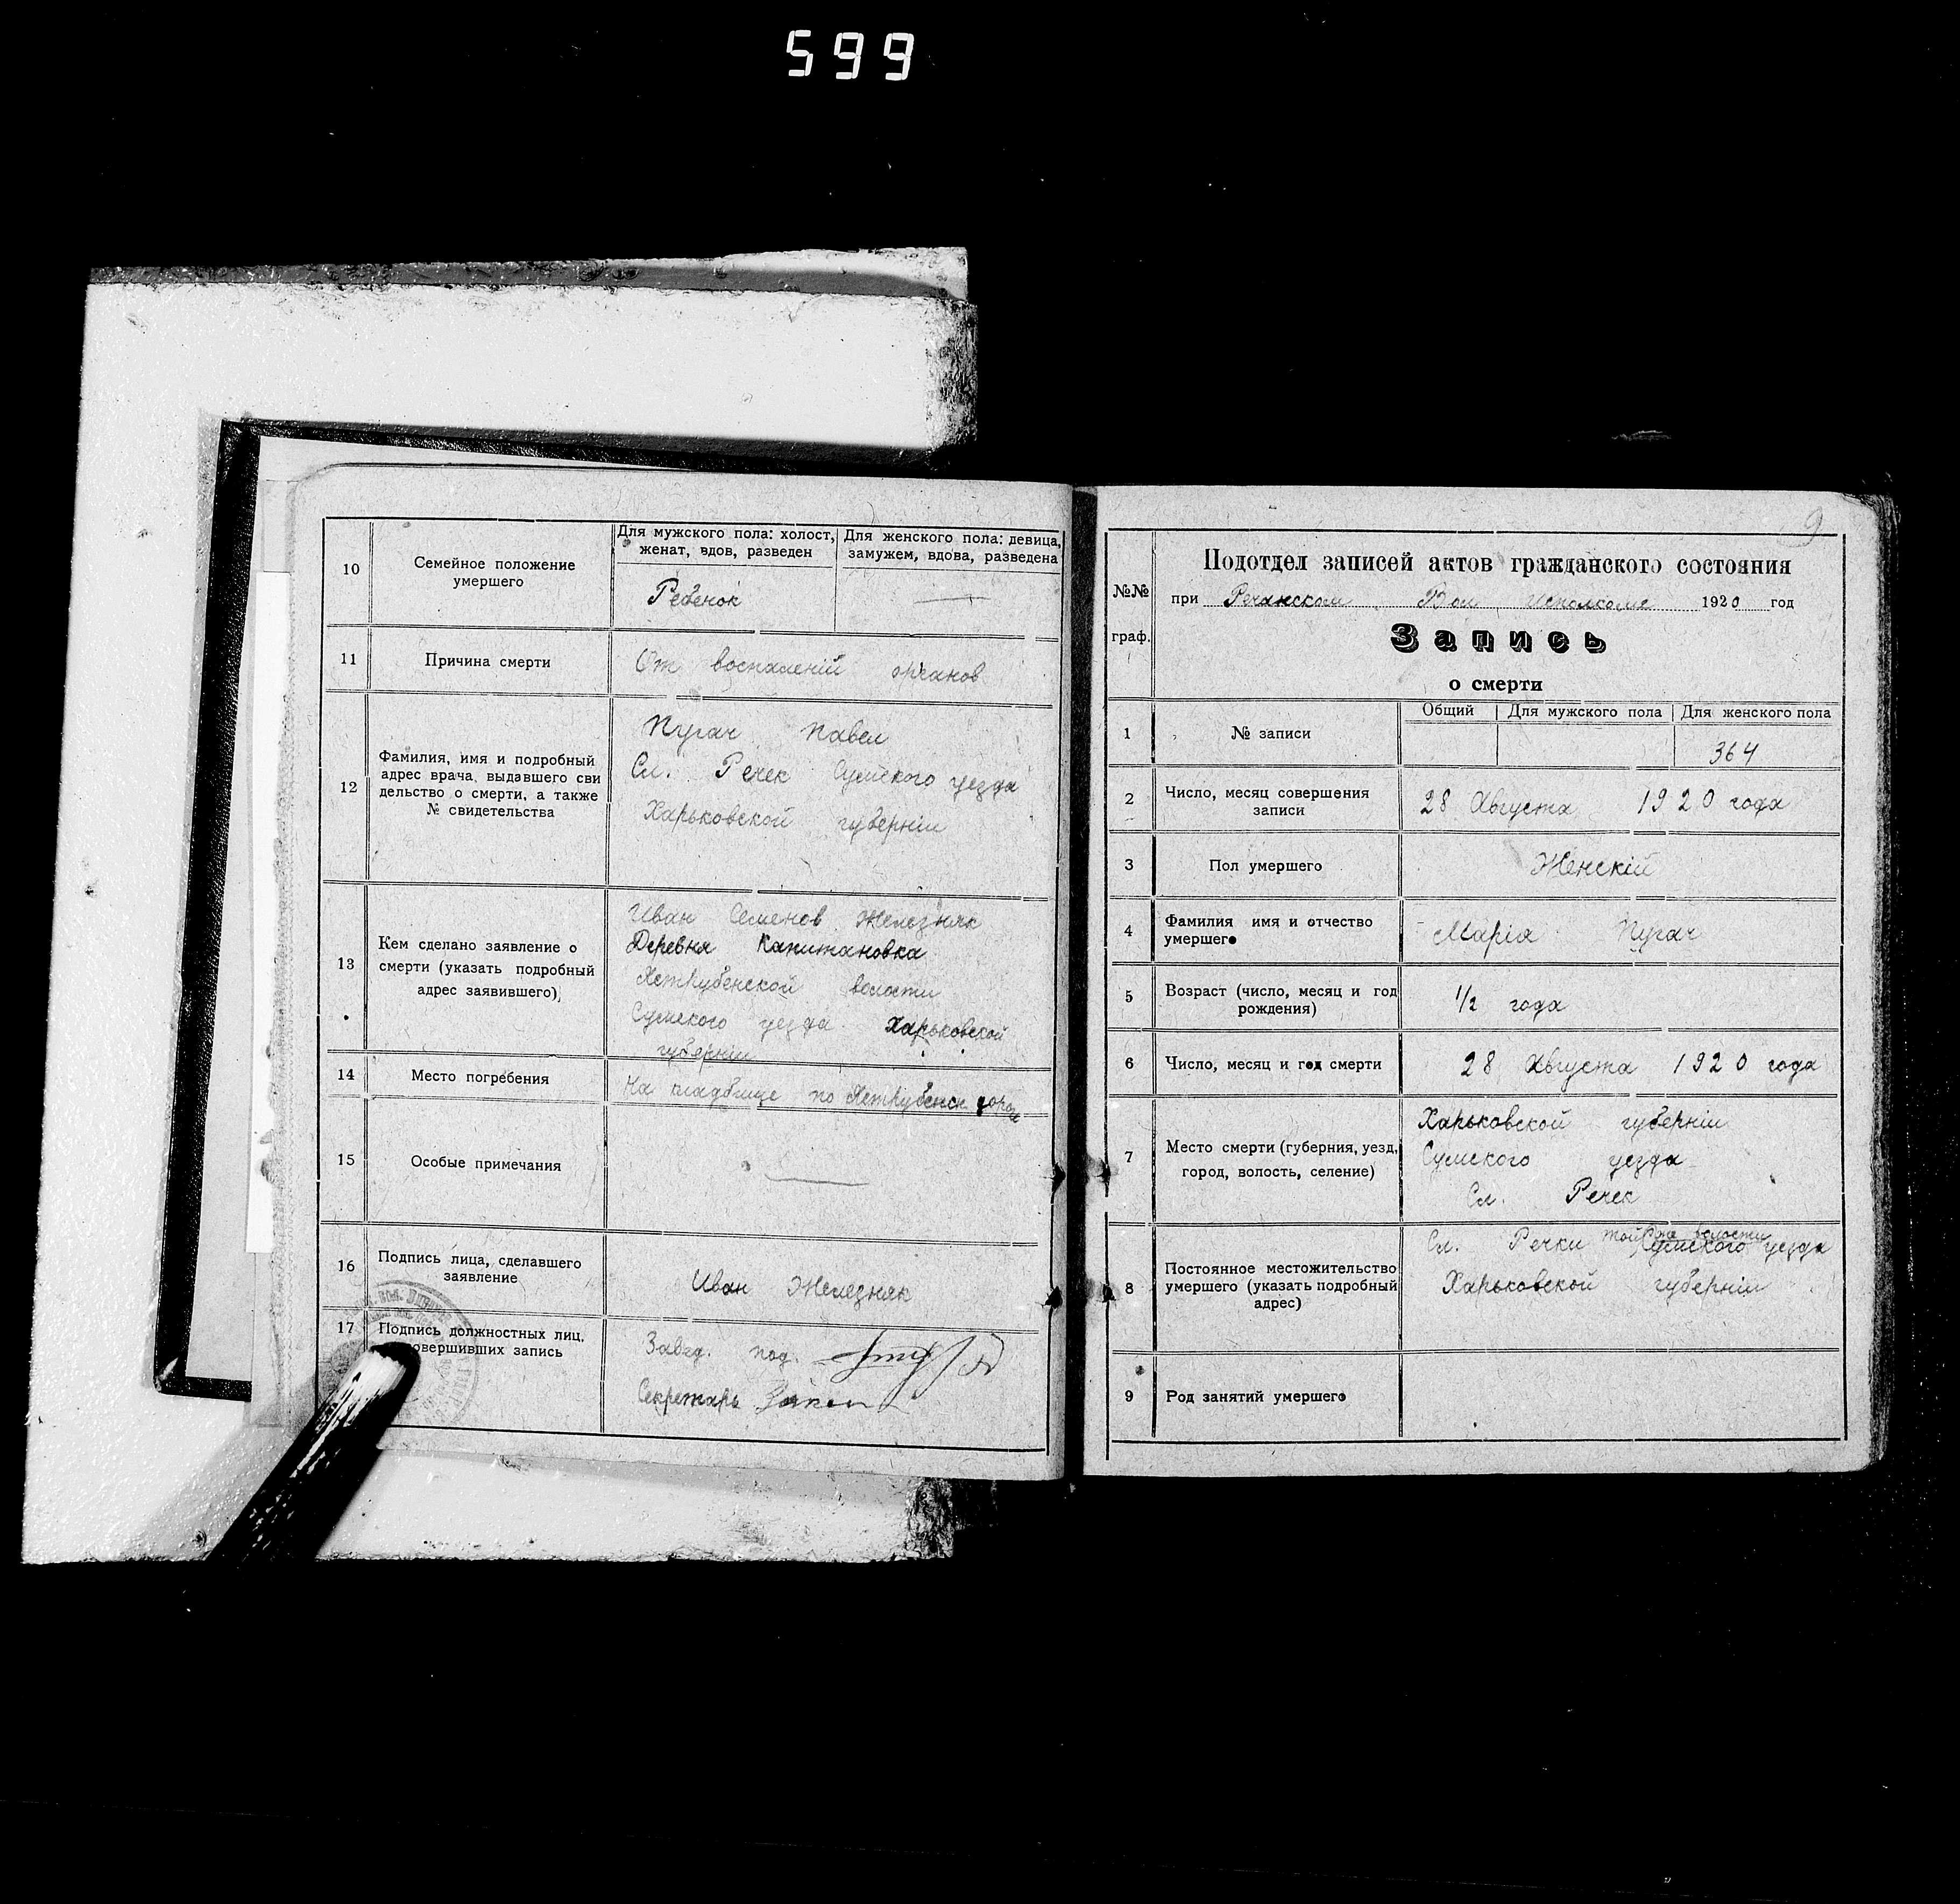 599
10
Семейное положение
умершего
Для мужского пола: холост,
женат, вдов, разведен
Для женского пола: девица,
замужем, вдова, разведена
Ребенок
11
Причина смерти
От воспаленій органов
12
Фамилия, имя и подробный
адрес врача, выдавшего сви
дельство о смерти, а также
№ свидетельства
Пугач Павел
Сл. Речек Сумского уезда
Харьковской губерніи
13
Кем сделано заявление о
смерти (указать подробный
адрес заявившего)
Иван Семенов Железняк
Деревня Капитановка
волости
Сумского уезда Харьковской
губерніи
14
Место погребения
На кладбище по
15
Особые примечания
16
Подпись лица, сделавшего
заявление
Иван Железняк
17
Подпись должностных лиц,
совершивших запись
Завед. под.
Секретарь
9
№№
граф.
Подотдел записей актов гражданского состояния
при Речанском Вол Исполкоме 1920 год
Запись
о смерти
1
№ записи
Общий
Для мужского пола
Для женского пола
364
2
Число, месяц совершения
записи
28 Августа 1920 года
3
Пол умершего
Женскій
4
Фамилия имя и отчество
умершего
Марія Пугач
5
Возраст (число, месяц и год
рождения)
1/2 года
6
Число, месяц и год смерти
28 Августа 1920 года
7
Место смерти (губерния, уезд,
город, волость, селение)
Харьковской губерніи
Сумского уезда
Сл. Речек
8
Постоянное местожительство
умершего (указать подробный
адрес)
той же волости
Сл. Речки Сумского уезда
Харьковской губерніи
9
Род занятий умершего